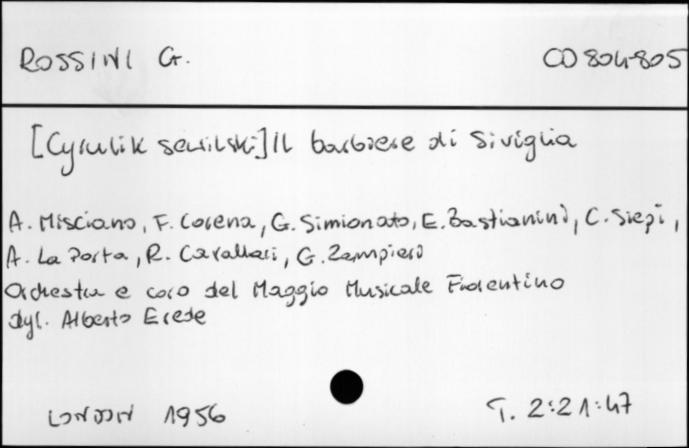 ROSSINI G.
CD 804-805
[Cyrulik sewilski] Il barbiere di Siviglia
A. Misciano, F. Corena, G. Simionato, E. Bastianini, C. Siepi,
A. La Porta, R. Cavallari, G. Zampieri
Orchestra e coro del Maggio Musicale Fiorentino
dyr. Alberto Erede
LONDON 1956
T. 2:21:47